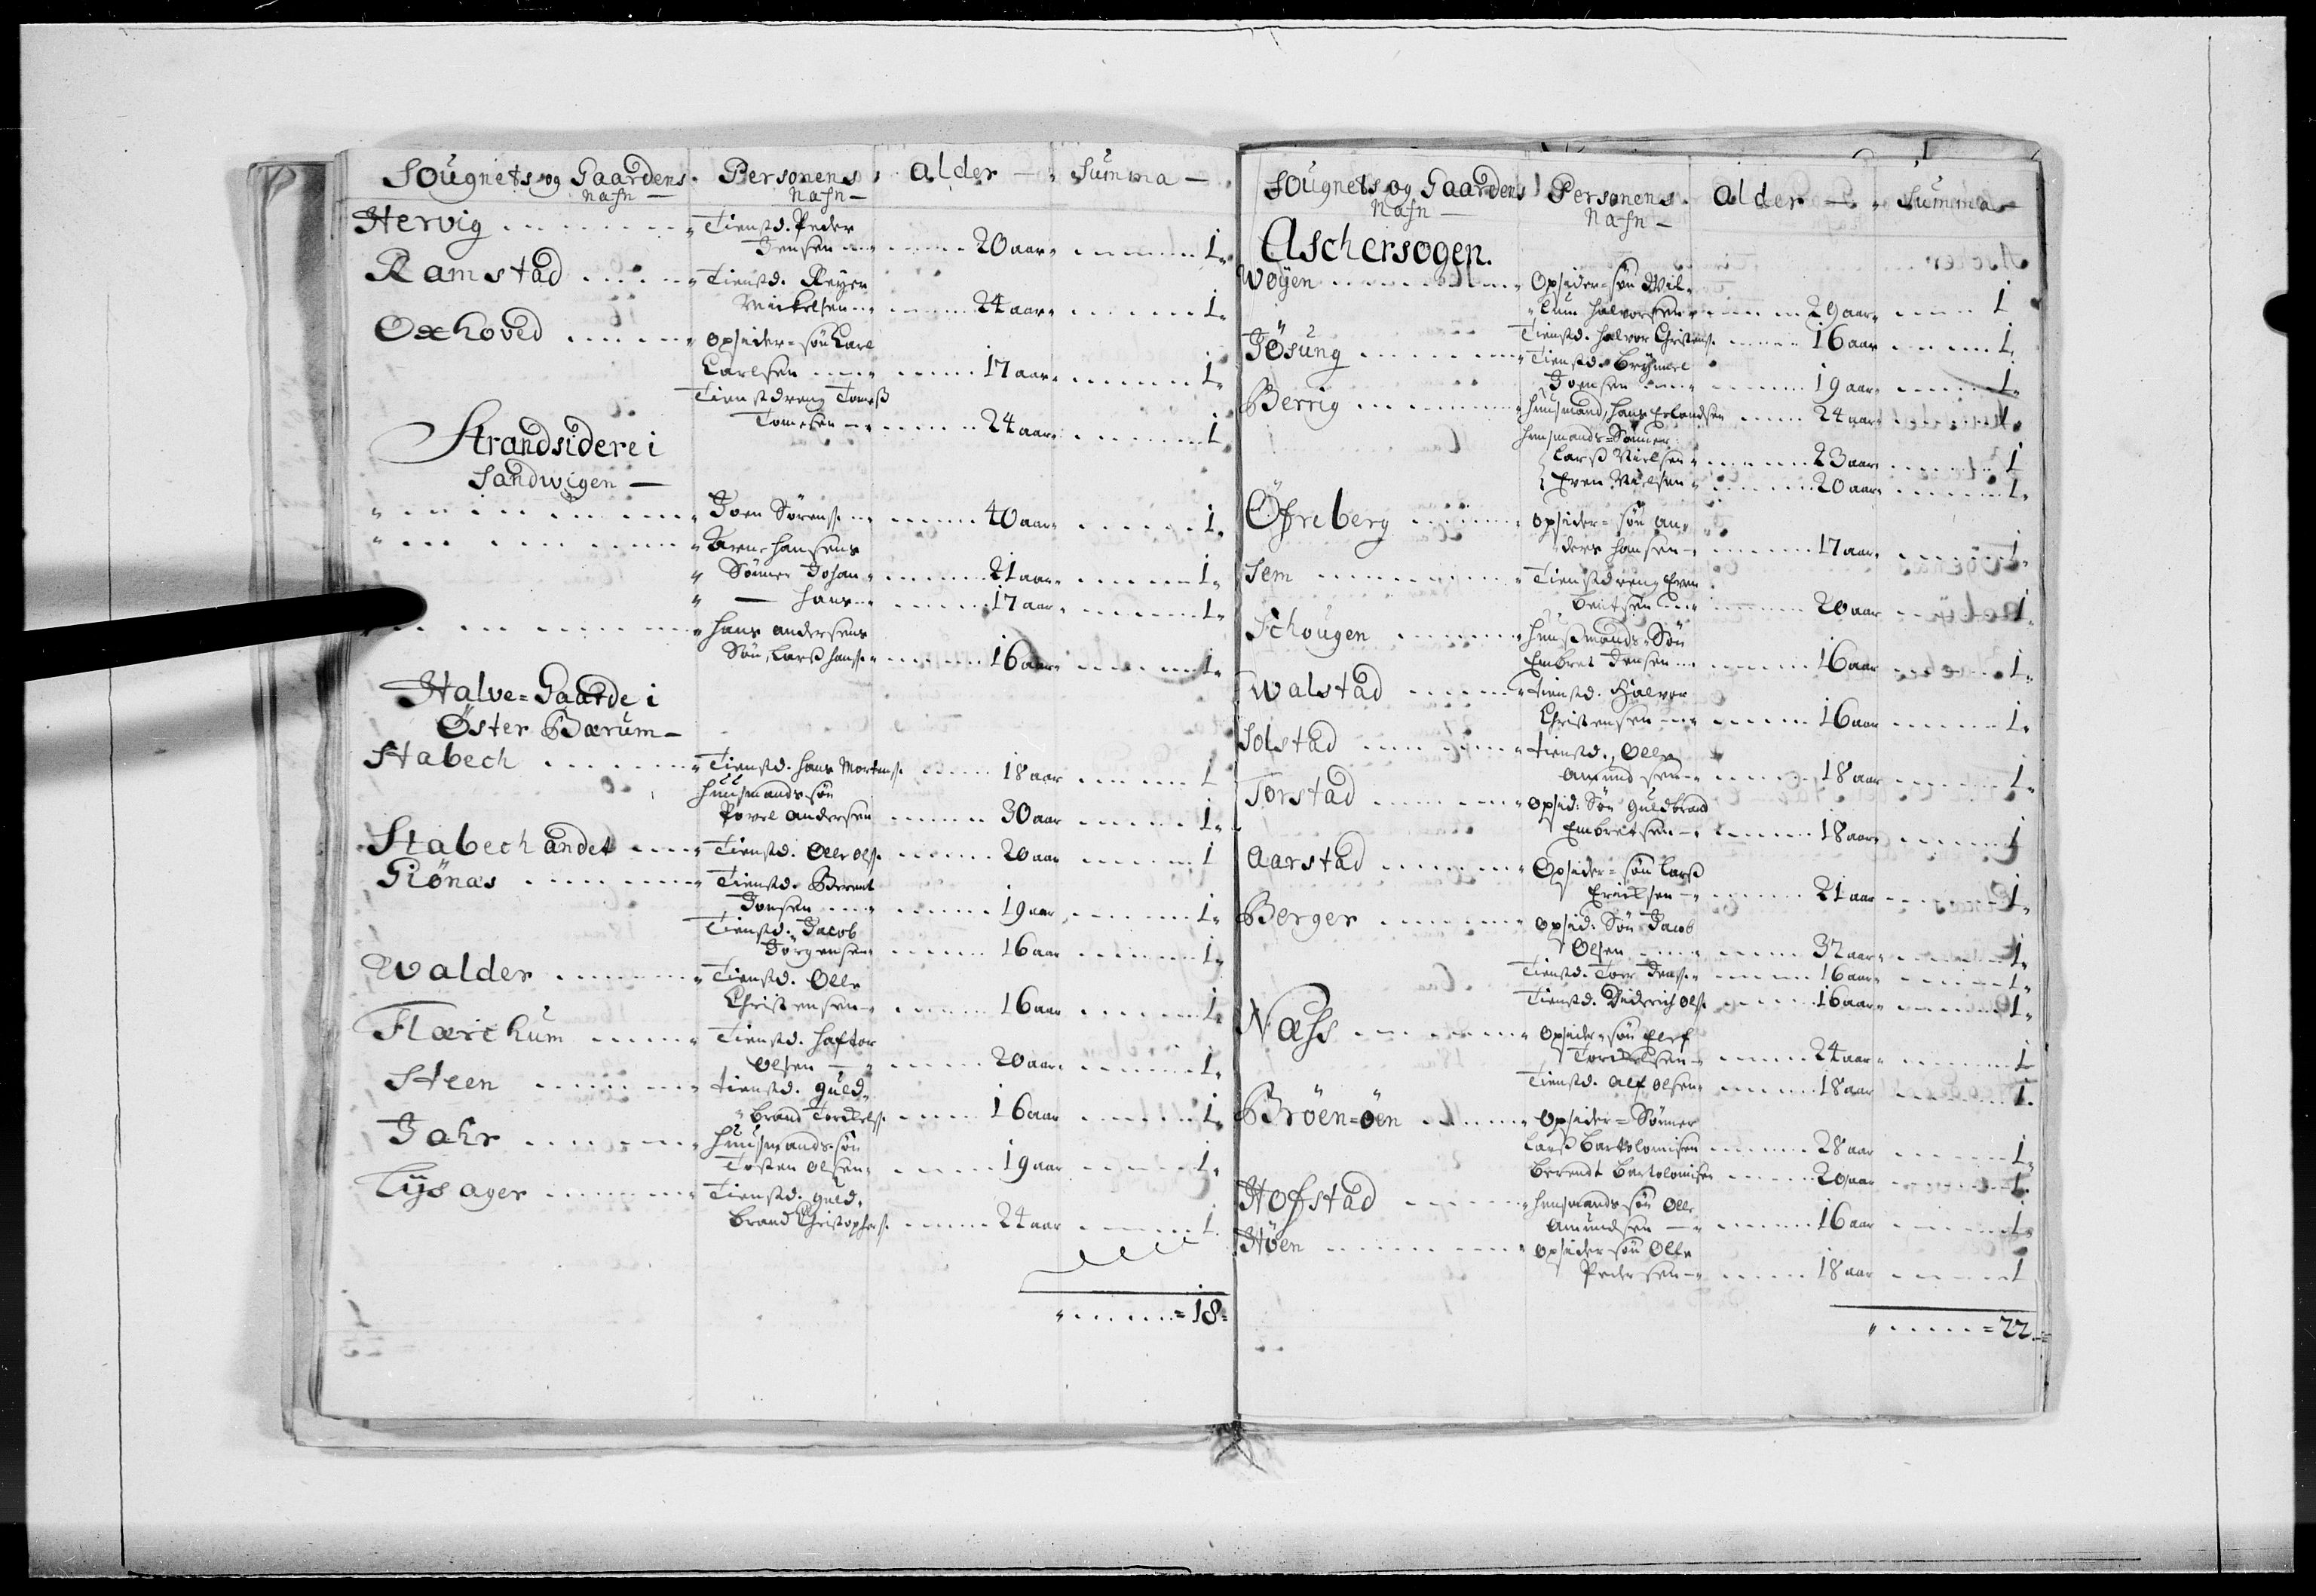 Sougnets og Gaardens Nafn — Personens Nafn — Alder — Summa —
Hervig Tienstd. Peder
Jensen 20 aar 1
Ramstad Tienstd. Reyer
Mickelsen 24 aar 1
Oxhoved opsider-søn Carl
Carlsen 17 aar 1
Tienstdreng Tomeß
Tomesen 24 aar 1
Strandsidere i
Sandwigen —
Joen Sørens. 40 aar 1
Arne Hansens
Sønner Johan 21 aar 1
— Hans 17 aar 1
Hans Andersens
Søn, Larß Hanss. 16 aar 1
Halve=Gaarde i
Öster Bærum —
Stabech Tienstd. Hans Mortens. 18 aar 1
Huusmands søn
Povel Andersen 30 aar 1
Stabech andet Tienstd. Olle Ols. 20 aar 1
Giönæs Tienstd. Berent
Jonsen 19 aar 1
Tienstd. Jacob
Jörgensen 16 aar 1
Walder Tienstd. Olle
Christensen 16 aar 1
Flæschum Tienstd. Haftor
Olsen 20 aar 1
Steen tienstd. Guld-
brand Torckels. 16 aar 1
Jahr Huusmands søn
Tosten Olsen 19 aar 1
Tijsager Tienstd. Guld-
brand Christophers. 24 aar 1
= 18 =
Sougnets og Gaardens Nafn — Personens Nafn — Alder — Summa
Aschersogen.
Wöyen Opsider=søn Wil-
lum Halvorsen 29 aar 1
Tienstd. Halvor Christens. 16 aar 1
Jösung Tienstd. Brynild
Joensen 19 aar 1
Berrig Huusmand, Hans Erlandsen 24 aar 1
Huusmands=Sønner
Larß Nielsen 23 aar 1
Even Nielsen 20 aar 1
Öfreberg opsider=søn An-
ders Hansen 17 aar 1
Sem Tienstdreng Even
Bentsen 20 aar 1
Schougen Huusmands=Søn
Embret Jensen 16 aar 1
Walstad tienstd. Halvor
Christensen 16 aar 1
Solstad tienstd. Olle
Amundsen 18 aar 1
Torstad opsid: Søn Guldbrand
Embretsen 18 aar 1
Aarstad Opsider=søn Larß
Ericksen 21 aar 1
Berger opsid: Søn Jacob
Olsen 32 aar 1
Tienstd. Tor Jenss. 16 aar 1
Tienstd. Diderich Ols. 16 aar 1
Næss opsider=søn Elef
Torckelsen 24 aar 1
Tienstd. Alf Olsen 18 aar 1
Bröen=öen Opsider=Sønner
Larß Bartolomisen 28 aar 1
Berendt Bartolomisen 20 aar 1
Hofstad Huusmands søn Olle
Amundsen 16 aar 1
Höen opsider søn Olle
Pedersen 18 aar 1
= 22 =